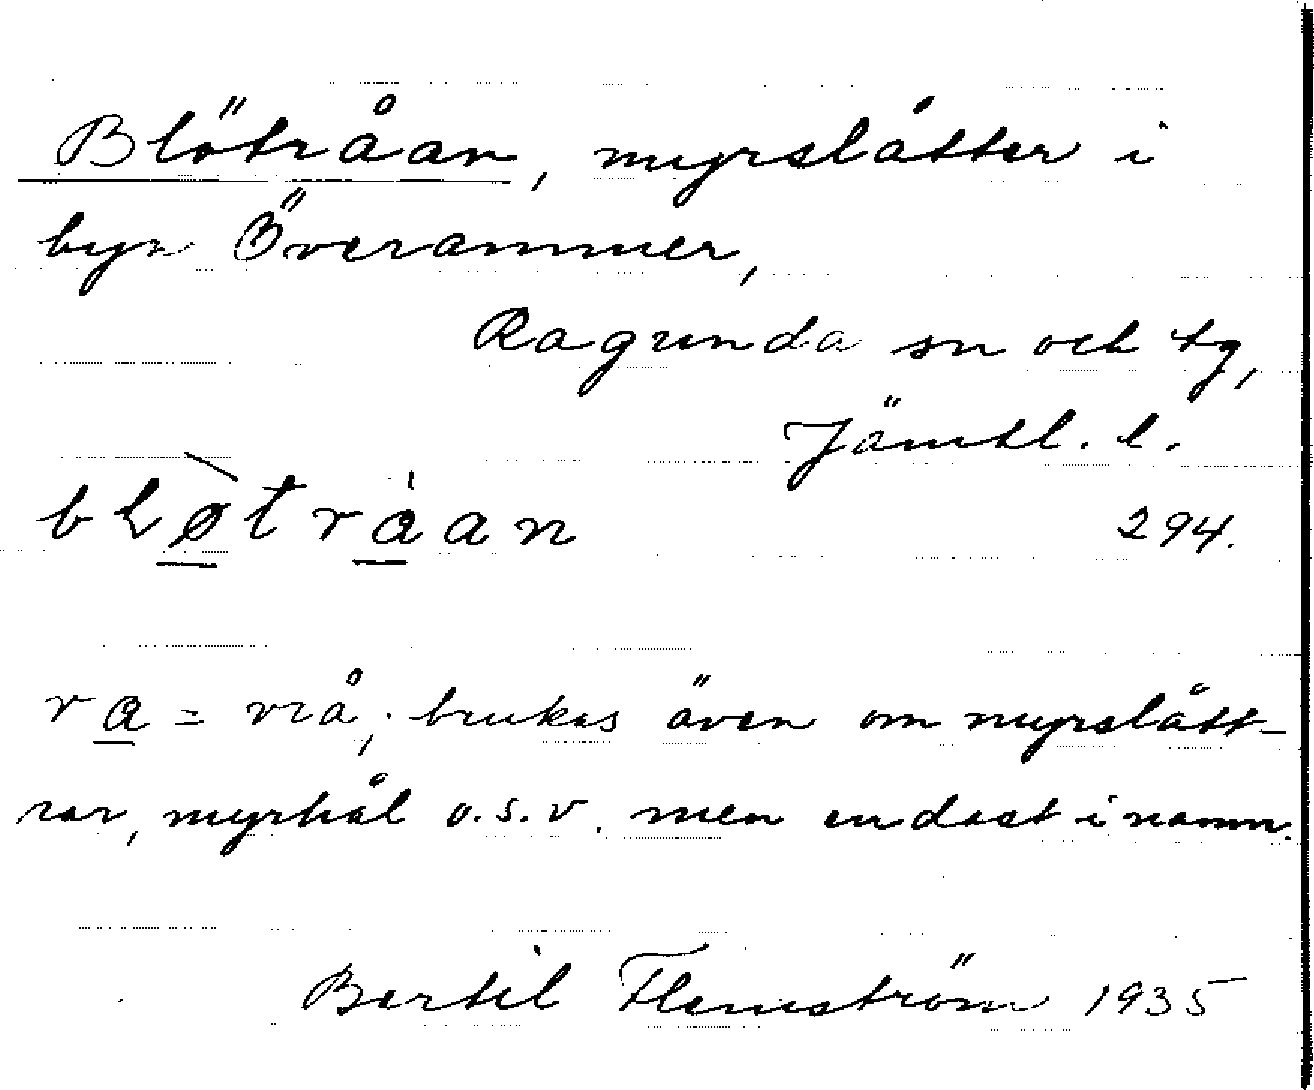 Blötråan, myrslåtter i
byn Överammer,
Ragunda sn och tg,
Jämtl. l.
bḷø̠̀tra̠an 294.
ra̠ = vrå; brukas även om myrslått-
rar, myrhål o.s.v. men endast i namn.
Bertil Flemström 1935